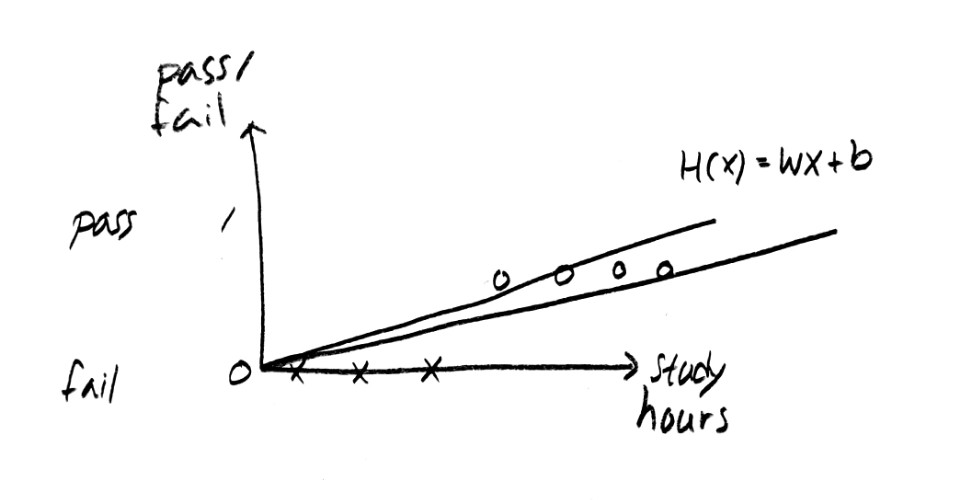 pass/
fail
H(x) = Wx + b
pass 1
fail 0
study
hours